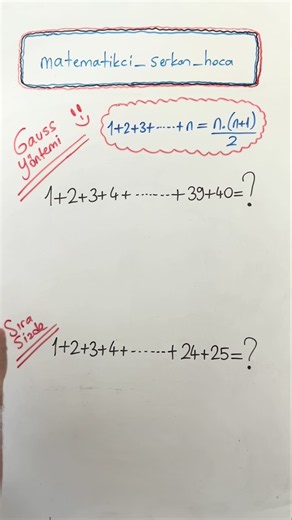 matematikci_serkan_hoca
Gauss
Yöntemi
1+2+3+......+n = n.(n+1)
2
1+2+3+4+......+39+40=?
Sıra
Sizde
1+2+3+4+......+24+25=?